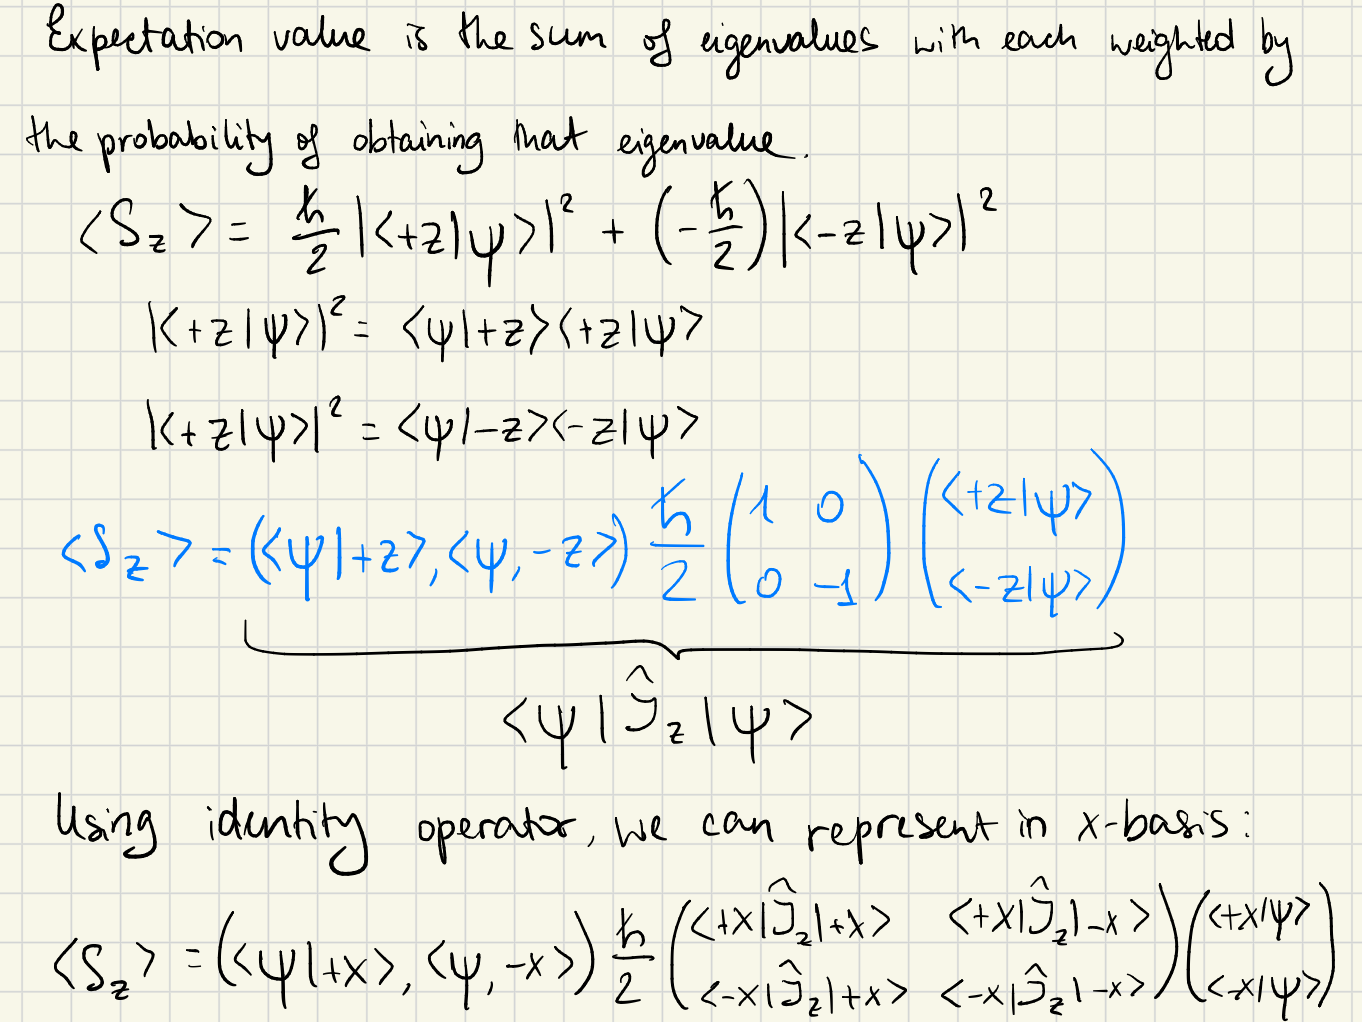 Expectation value is the sum of eigenvalues with each weighted by
the probability of obtaining that eigenvalue.
<S_z> = ℏ/2 |<+z|ψ>|² + (-ℏ/2)|<-z|ψ>|²
|<+z|ψ>|² = <ψ|+z><+z|ψ>
|<+z|ψ>|² = <ψ|-z><-z|ψ>
<S_z> = (<ψ|+z>, <ψ,-z>) ℏ/2 (1 0; 0 -1) (<+z|ψ>; <-z|ψ>)
<ψ|Ĵ_z|ψ>
Using identity operator, we can represent in x-basis:
<S_z> = (<ψ|+x>, <ψ,-x>) ℏ/2 (<+x|Ĵ_z|+x> <+x|Ĵ_z|-x>; <-x|Ĵ_z|+x> <-x|Ĵ_z|-x>) (<+x|ψ>; <-x|ψ>)